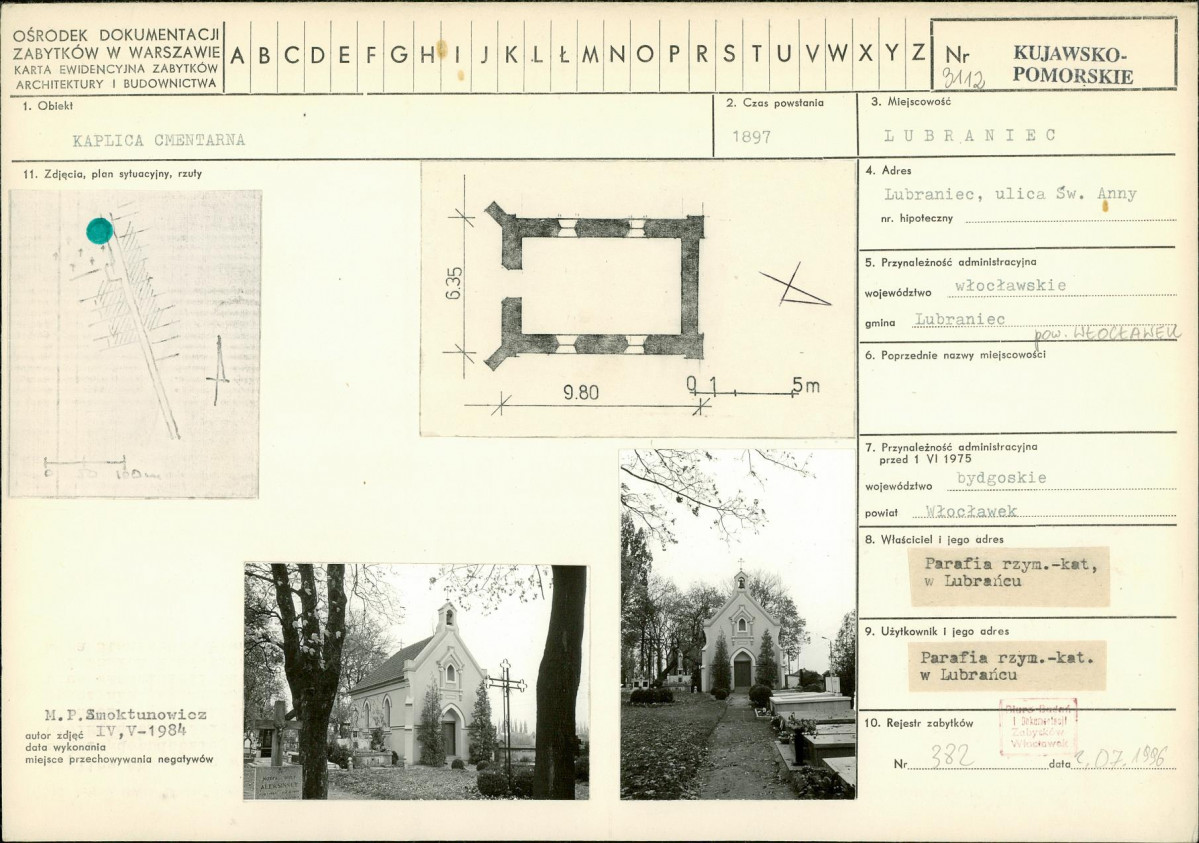 OŚRODEK DOKUMENTACJI
ZABYTKÓW W WARSZAWIE
KARTA EWIDENCYJNA ZABYTKÓW
ARCHITEKTURY I BUDOWNICTWA
A B C D E F G H I J K L Ł M N O P R S T U V W X Y Z
Nr 3112
KUJAWSKO-
POMORSKIE
1. Obiekt
KAPLICA CMENTARNA
2. Czas powstania
1897
3. Miejscowość
LUBRANIEC
11. Zdjęcia, plan sytuacyjny, rzuty
0 50 100m
6.35
9.80
0 1 5m
4. Adres
Lubraniec, ulica Św. Anny
nr. hipoteczny
5. Przynależność administracyjna
województwo włocławskie
gmina Lubraniec
pow. WŁOCŁAWEK
6. Poprzednie nazwy miejscowości
7. Przynależność administracyjna
przed 1 VI 1975
województwo bydgoskie
powiat Włocławek
8. Właściciel i jego adres
Parafia rzym.-kat,
w Lubrańcu
9. Użytkownik i jego adres
Parafia rzym.-kat.
w Lubrańcu
10. Rejestr zabytków
Biuro Badań
i Dokumentacji
Zabytków
Włocławek
Nr 382 data 2.07.1996
M.P.Smoktunowicz
autor zdjęć IV,V-1984
data wykonania
miejsce przechowywania negatywów